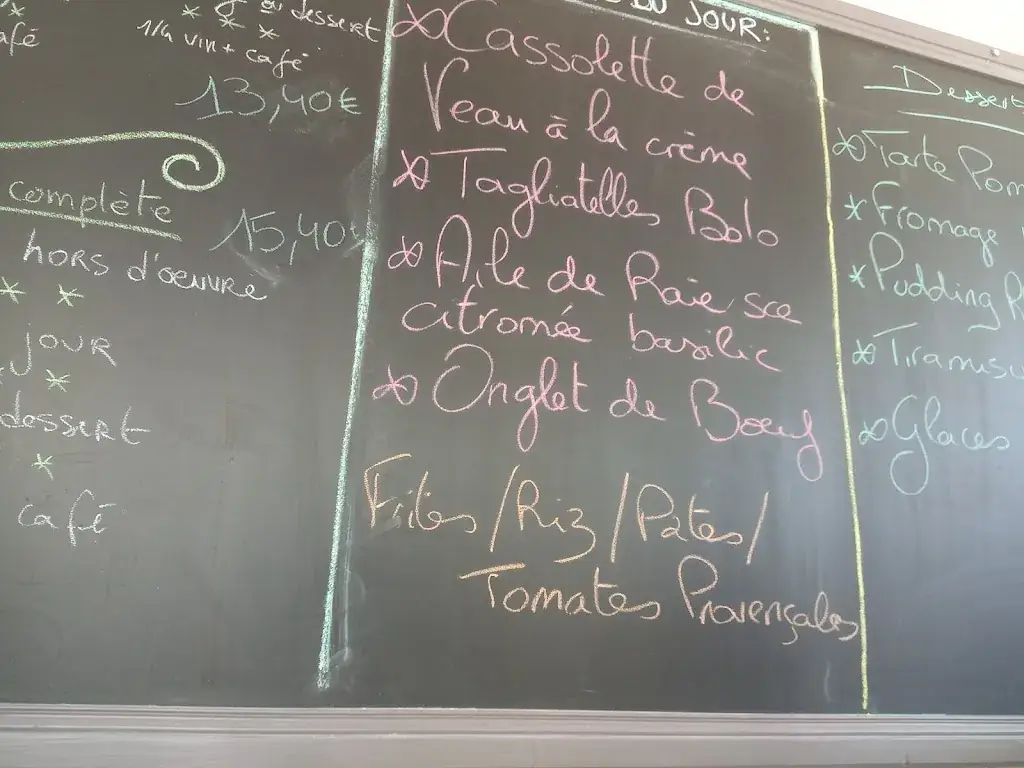 ou dessert
café
1/4 vin + café
13,40€
complète
15,40€
hors d'oeuvre
jour
dessert
café
DU JOUR:
Cassolette de
Veau à la crème
Tagliatelles Bolo
Aile de Raie, sce
citromée basilic
Onglet de Boeuf
Frites / Riz / Pates /
Tomates Provençales
Dessert
Tarte Pom
Fromage
Pudding
Tiramisu
Glaces